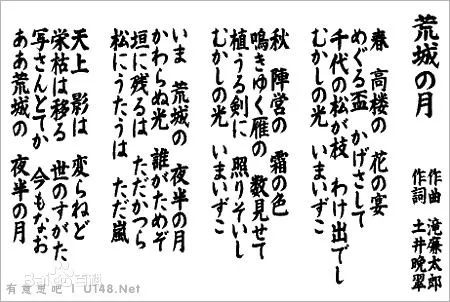 荒城の月
作曲 滝廉太郎
作詞 土井晩翠
春 高楼の 花の宴
めぐる盃 かげさして
千代の松が枝 わけ出でし
むかしの光 いまいずこ
秋 陣営の 霜の色
鳴きゆく雁の 数見せて
植うる剣に 照りそいし
むかしの光 いまいずこ
いま 荒城の 夜半の月
かわらぬ光 誰がためぞ
垣に残るは ただかつら
松にうたうは ただ嵐
天上 影は 変らねど
栄枯は移る 世のすがた
写さんとてか 今もなお
ああ荒城の 夜半の月
Bai百科
有意思吧 | U148.Net